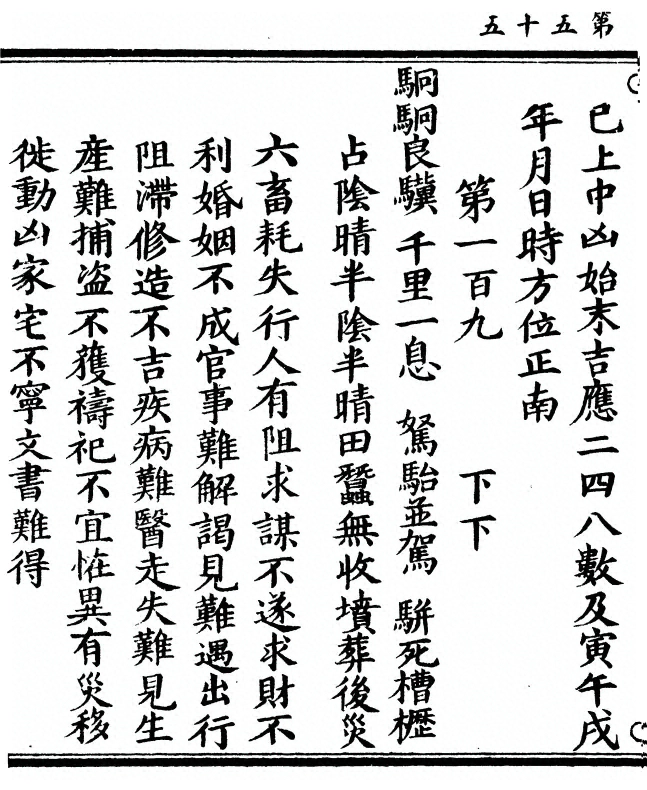 第五十五
已上中凶始末吉應二四八數及寅午戌
年月日時方位正南
第一百九 下下
駉駉良驥 千里一息 駑駘並駕 駢死槽櫪
占陰晴半陰半晴田蠶無收墳葬後災
六畜耗失行人有阻求謀不遂求財不
利婚姻不成官事難解謁見難遇出行
阻滯修造不吉疾病難醫走失難見生
產難捕盜不獲禱祀不宜恠異有災移
徙動凶家宅不寧文書難得